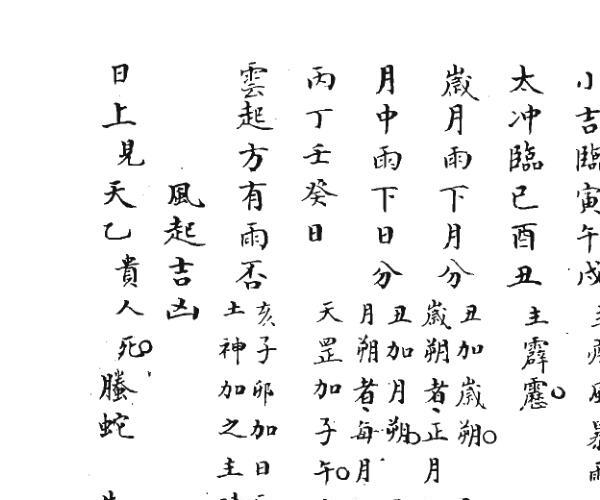 小吉臨寅午戌
太冲臨巳酉丑主霹靂
歲月雨下月分丑加歲朔
歲朔者正月
月中雨下日分丑加月朔
月朔者每月
丙丁壬癸日天罡加子午
雲起方有雨否亥子卯加日
土神加之主
風起吉凶
日上見天乙貴人死螣蛇